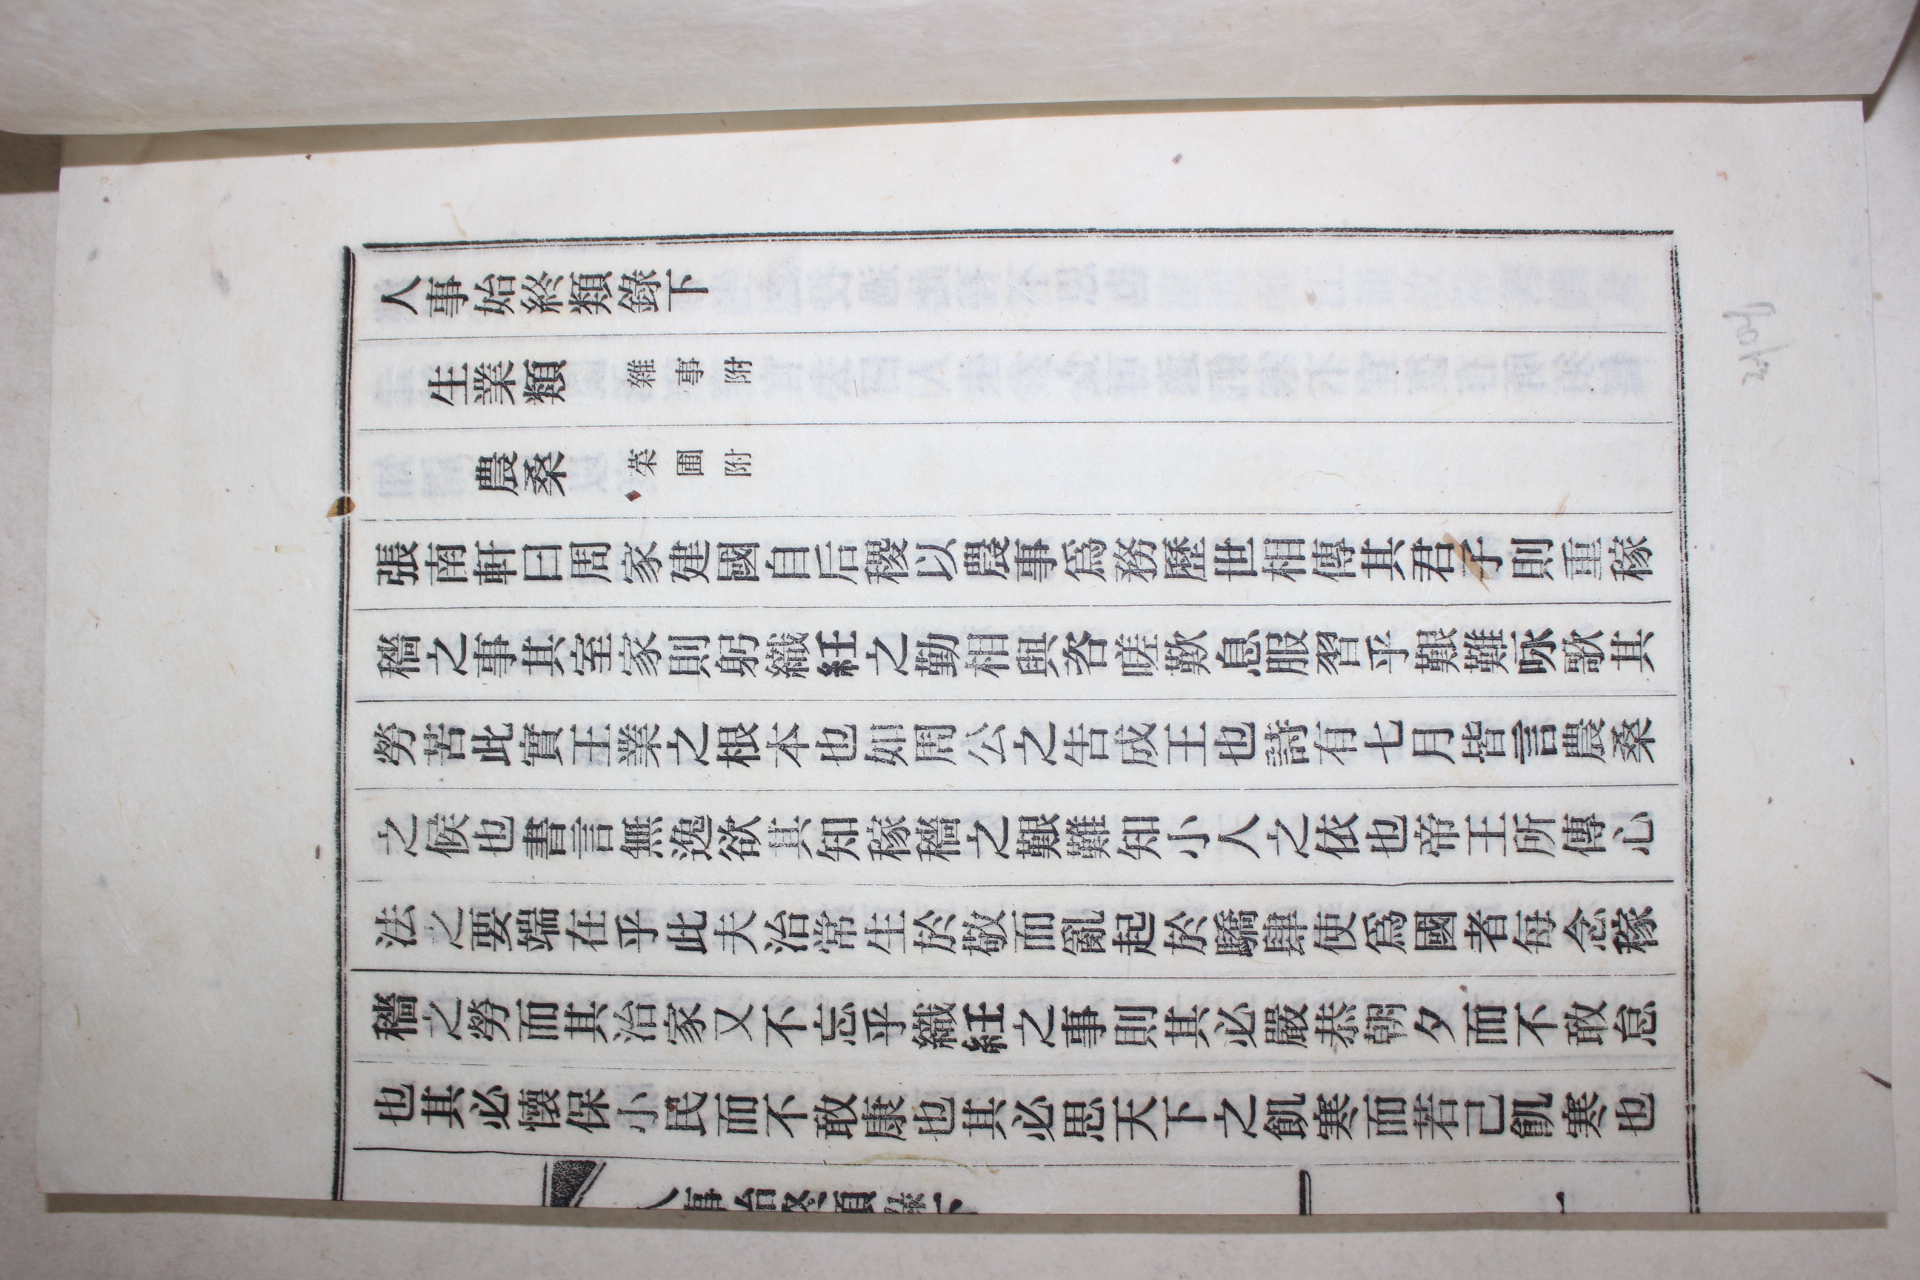 人事始終類錄下
生業類 雜事附
農桑 菜圃附
張南軒曰周家建國自后稷以農事爲務歷世相傳其君子則重稼
穡之事其室家則躬織紝之勤相與咨嗟歎息服習乎艱難咏歌其
勞苦此實王業之根本也如周公之告成王也詩有七月皆言農桑
之候也書言無逸欲其知稼穡之艱難知小人之依也帝王所傳心
法之要端在乎此夫治常生於敬而亂起於驕肆使爲國者每念稼
穡之勞而其治家又不忘乎織紝之事則其必嚴恭朝夕而不敢怠
也其必懷保小民而不敢康也其必思天下之飢寒而若己飢寒也
人事始終類錄下